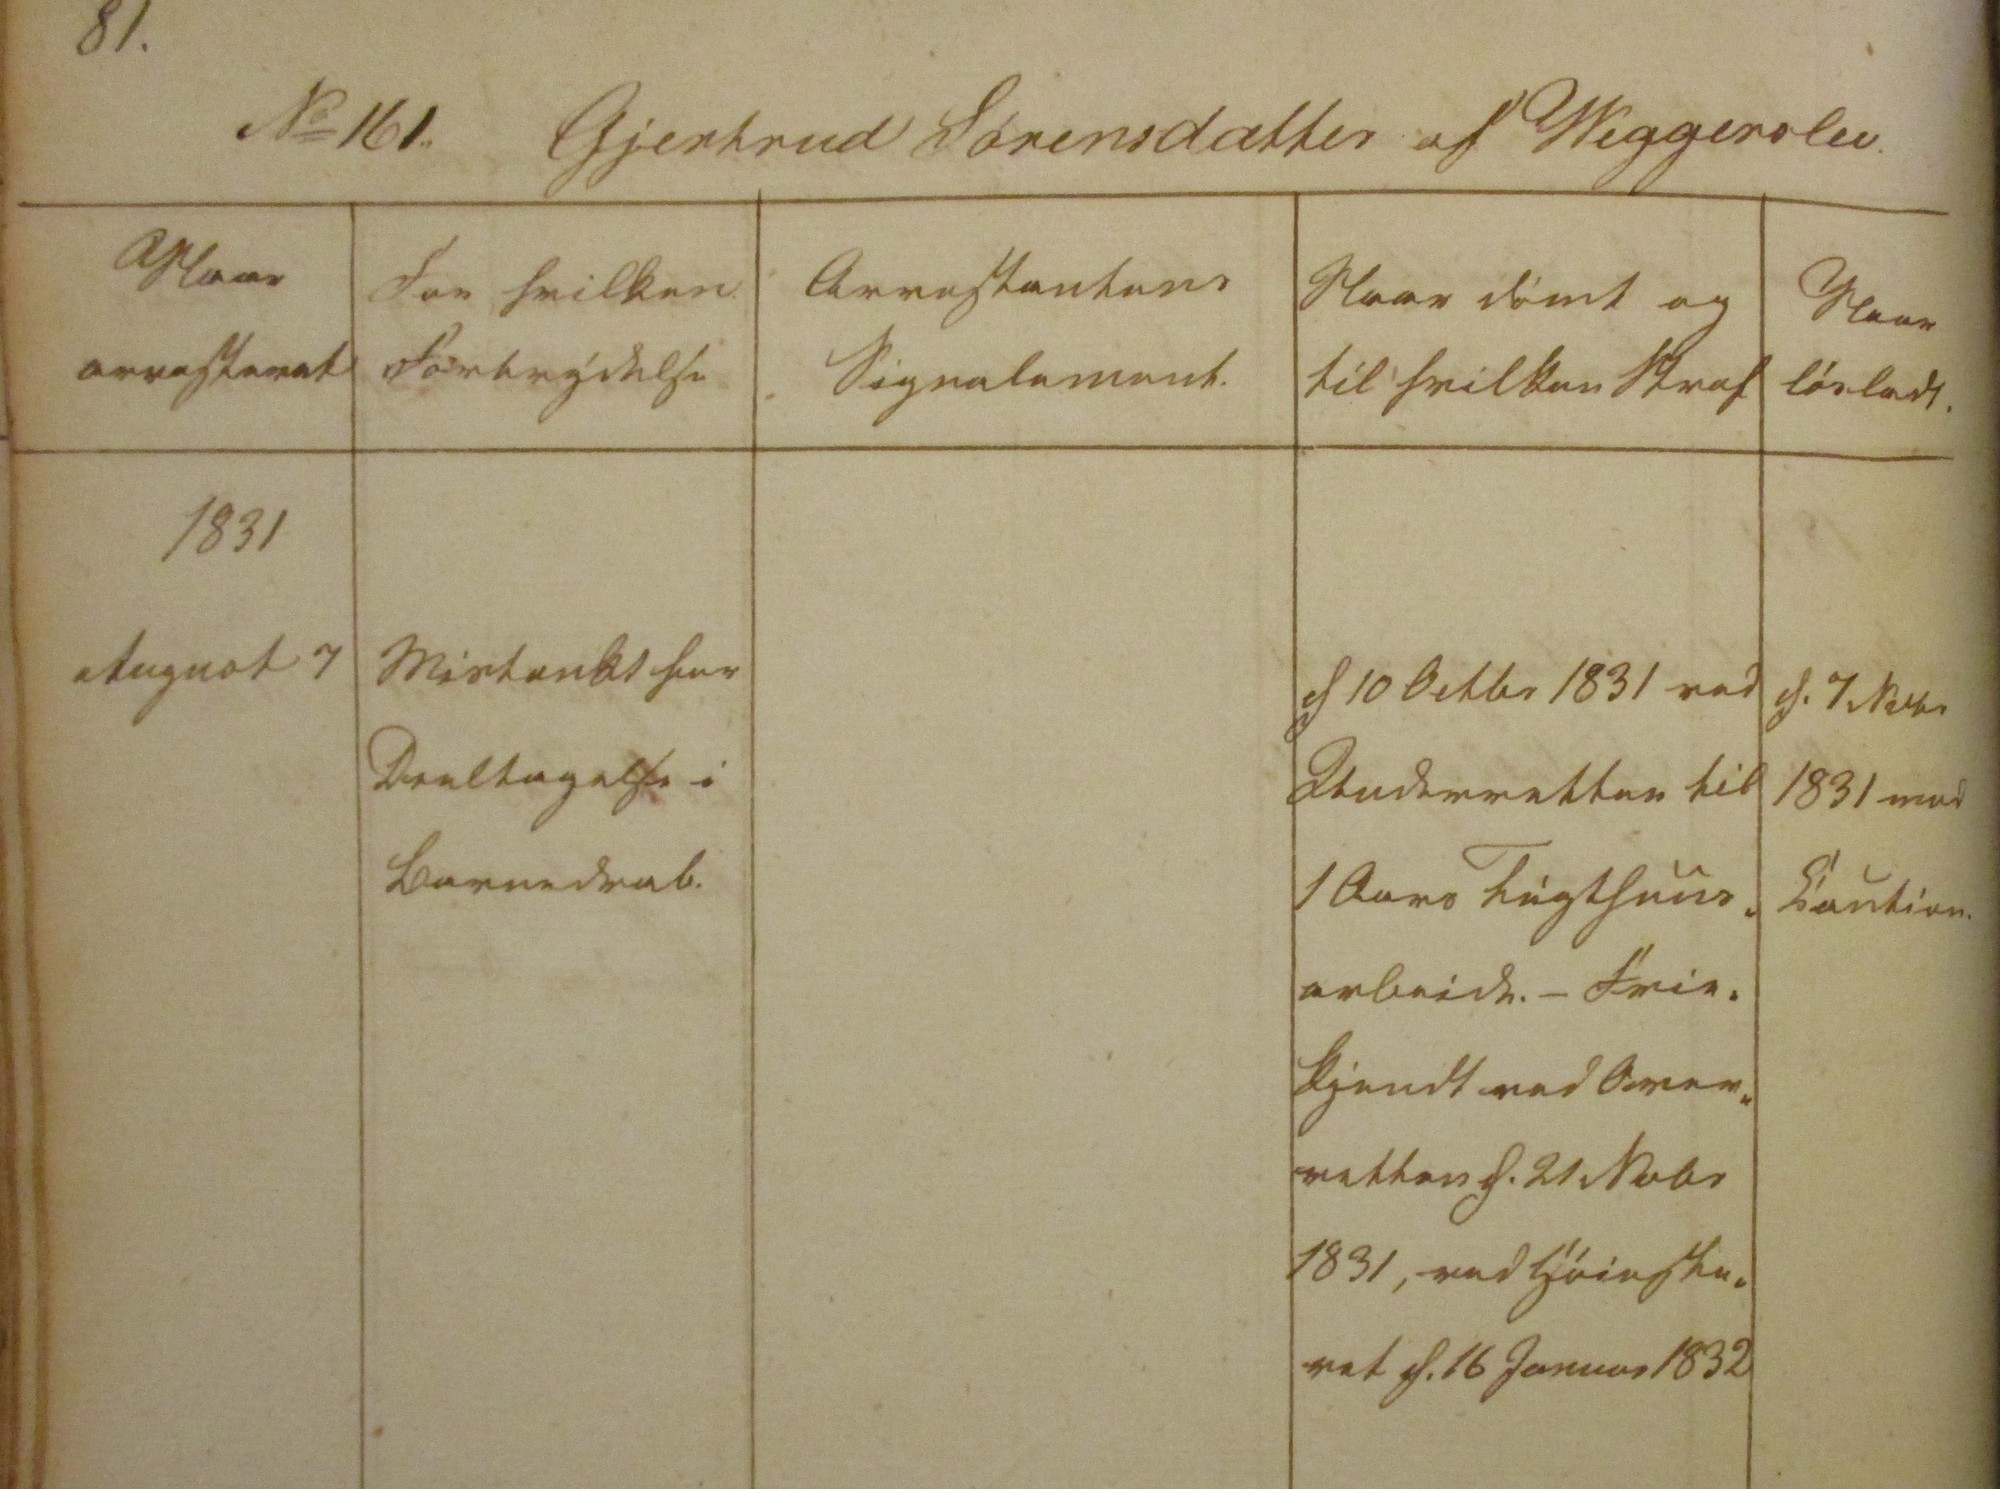 81.
No 161. Gjertrud Sørensdatter af Weggerslev.
Naar
arresteret
For hvilken
Forbrydelse
Arrestantens
Signalement.
Naar dømt og
til hvilken Straf
Naar
løsladt.
1831
August 7
Mistænkt for
Deeltagelse i
Barnedrab.
d 10 Octbr 1831 ved
Underretten til
1 Aars Tugthuus-
arbeide. – Frie-
kjendt ved Over-
retten d. 21 Novbr
1831, ved Høieste-
ret d. 16 Januar 1832
d. 7 Novbr
1831 mod
Caution.